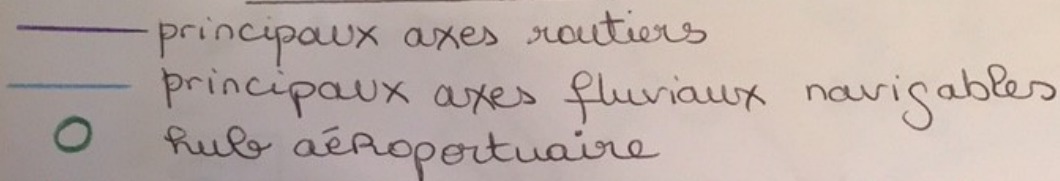 principaux axes routiers
principaux axes fluviaux navigables
hub aéroportuaire